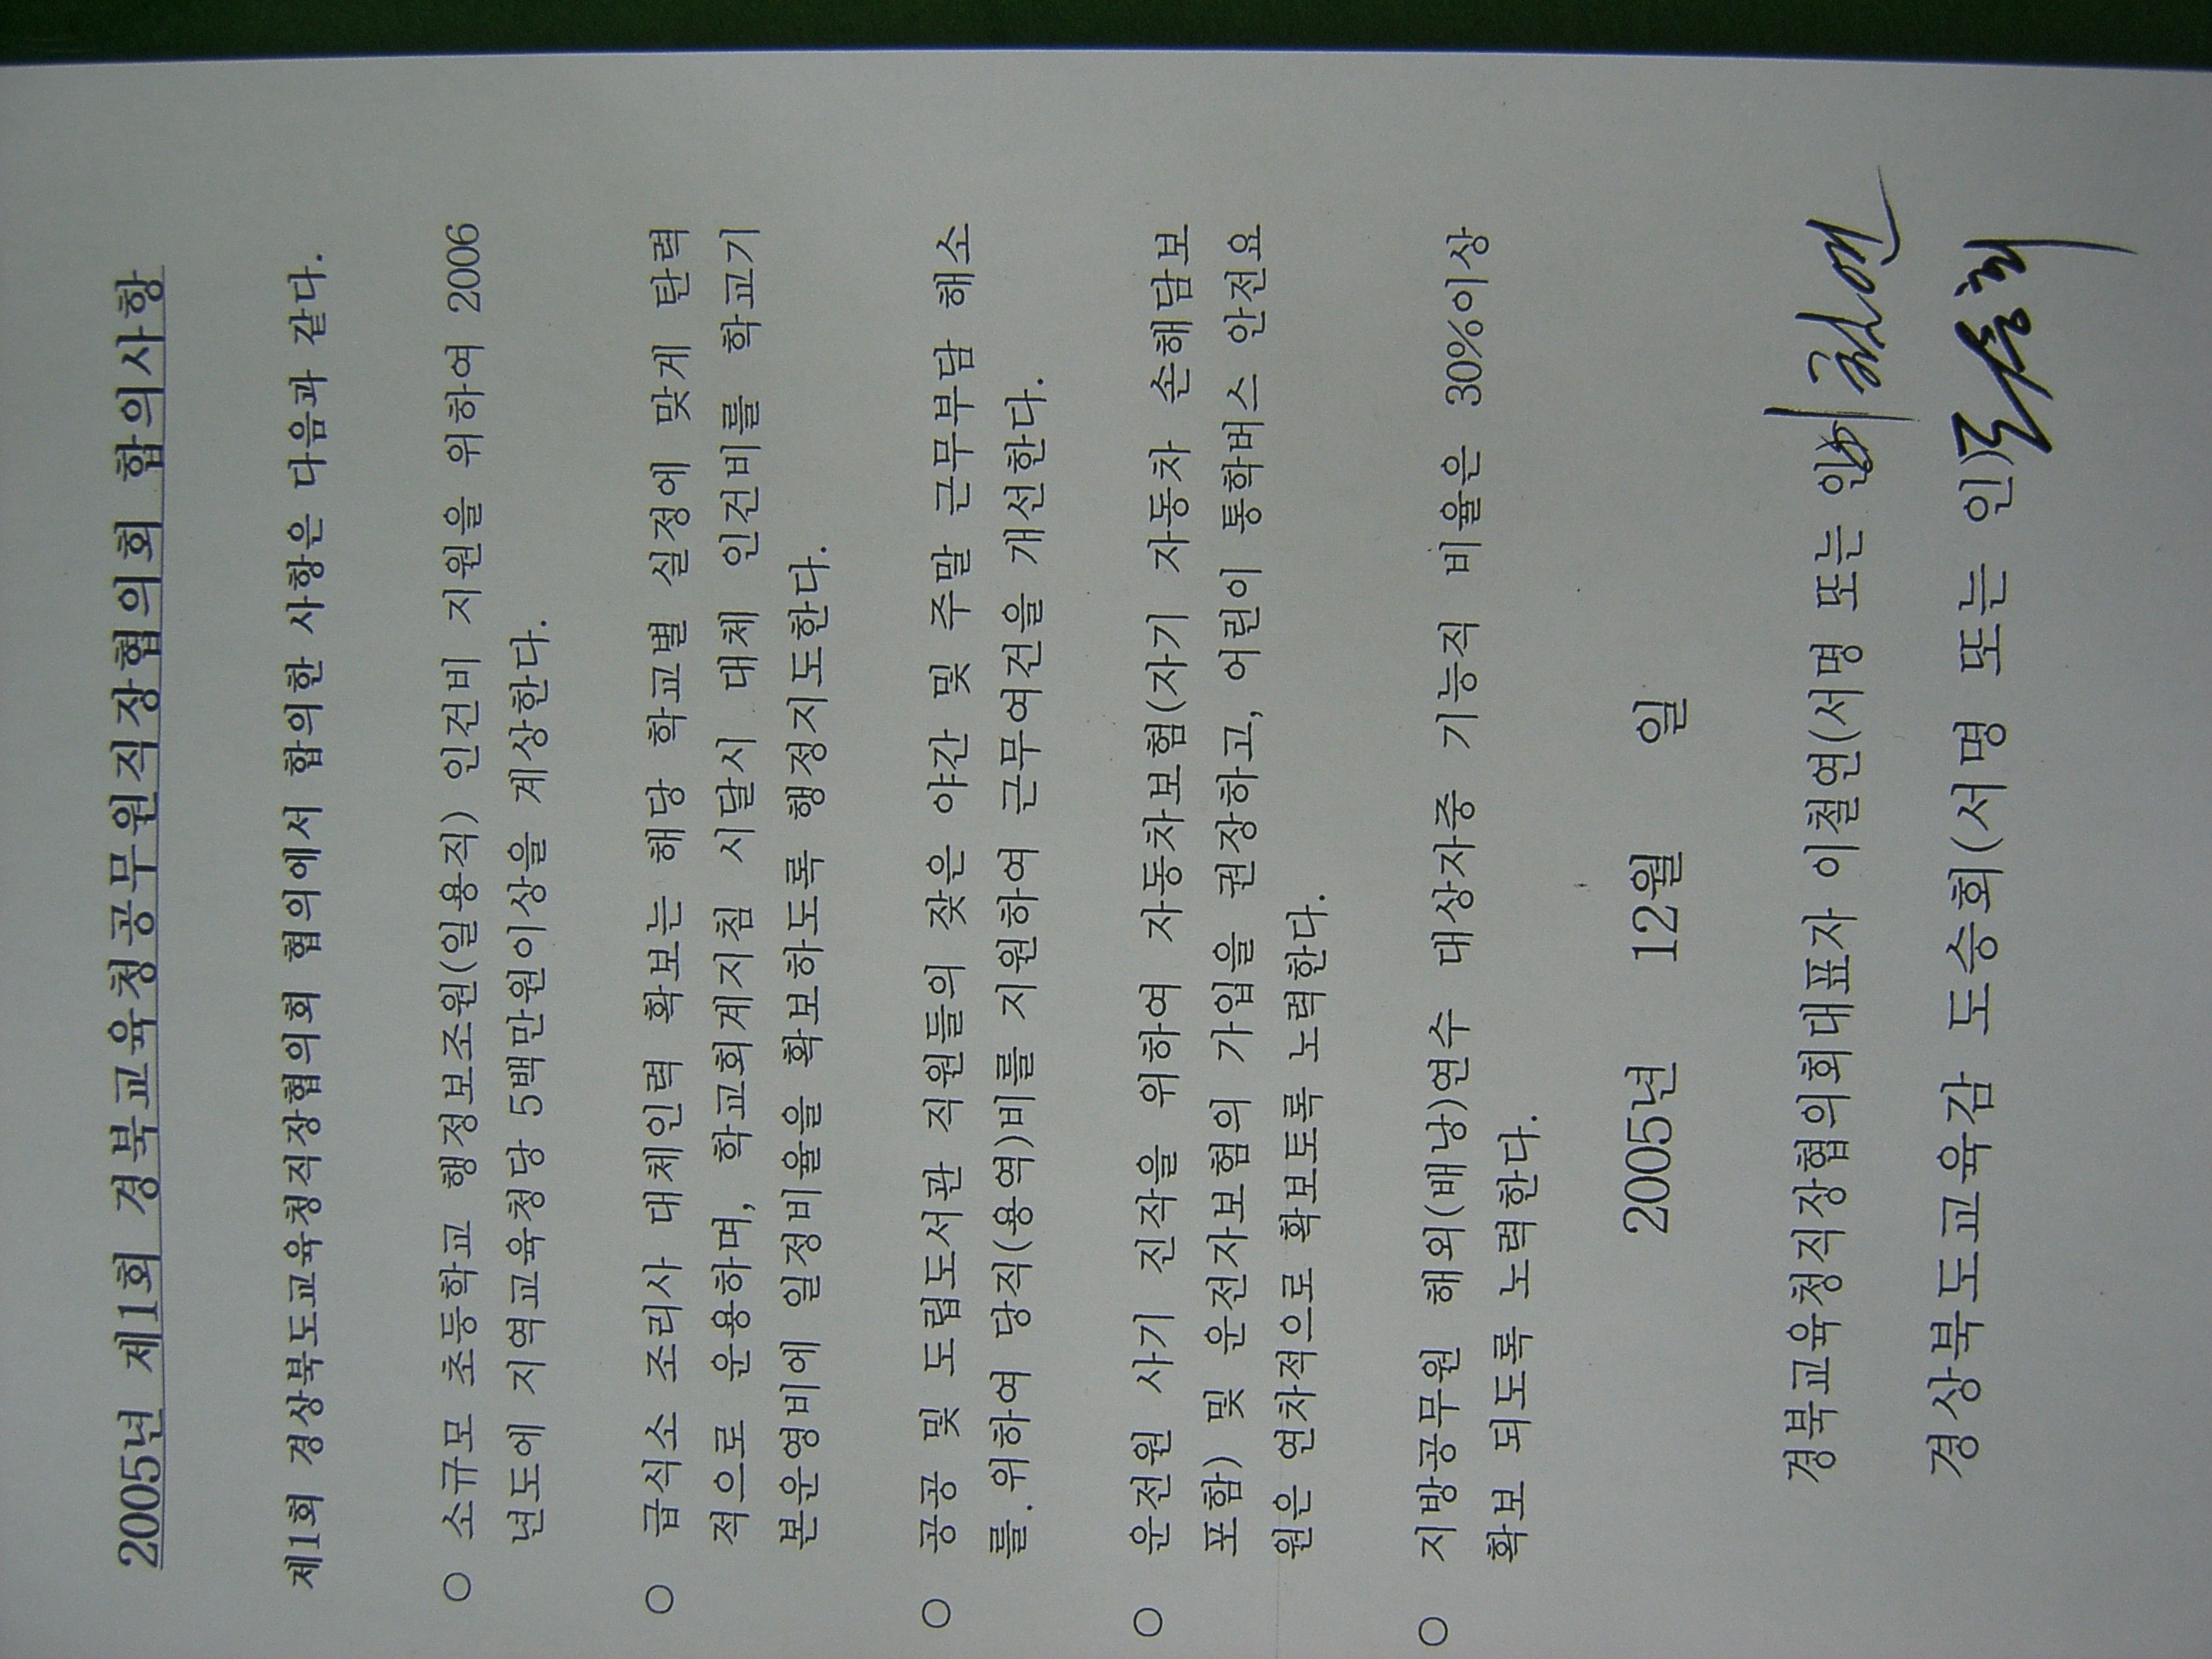 2005년 제1회 경북교육청공무원직장협의회 합의사항
제1회 경상북도교육청직장협의회 협의에서 합의한 사항은 다음과 같다.
○ 소규모 초등학교 행정보조원(일용직) 인건비 지원을 위하여 2006
년도에 지역교육청당 5백만원이상을 계상한다.
○ 급식소 조리사 대체인력 확보는 해당 학교별 실정에 맞게 탄력
적으로 운용하며, 학교회계지침 시달시 대체 인건비를 학교기
본운영비에 일정비율을 확보하도록 행정지도한다.
○ 공공 및 도립도서관 직원들의 잦은 야간 및 주말 근무부담 해소
를 위하여 당직(용역)비를 지원하여 근무여건을 개선한다.
○ 운전원 사기 진작을 위하여 자동차보험(자기 자동차 손해담보
포함) 및 운전자보험의 가입을 권장하고, 어린이 통학버스 안전요
원은 연차적으로 확보토록 노력한다.
○ 지방공무원 해외(배낭)연수 대상자중 기능직 비율은 30%이상
확보 되도록 노력한다.
2005년 12월 일
경북교육청직장협의회대표자 이철연(서명 또는 인) 이철연
경상북도교육감 도승회(서명 또는 인) 도승회